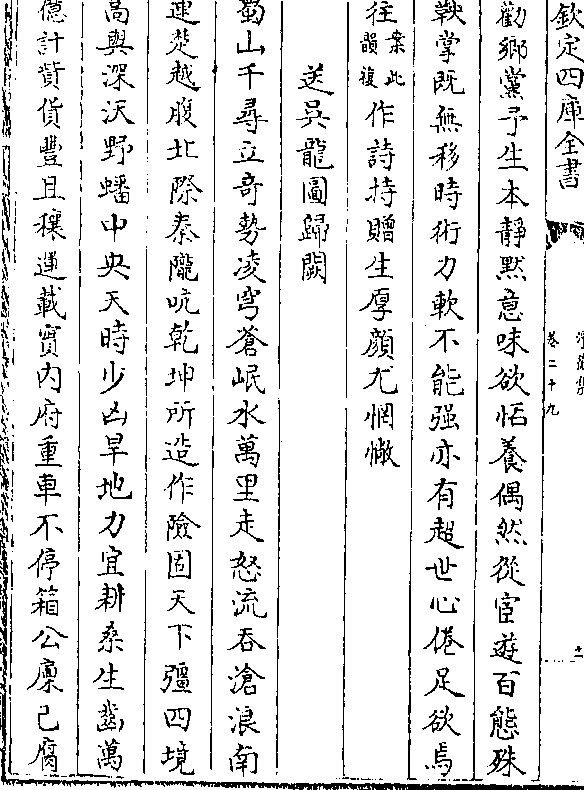 欽定四庫全書
卷二十九
勸鄉黨予生本靜黙意味欲恬養偶然從宦遊百態殊
鞅掌既無移時術力軟不能强亦有超世心倦足欲焉
往案此韻複作詩持贈生厚顔尤惘憱
送吳龍圖歸闕
蜀山千尋立竒勢凌穹蒼岷水萬里走怒流吞滄浪南
連楚越腹北際秦隴吭乾坤所造作險固天下疆四境
高與深沃野蟠中央天時少凶旱地力宜耕桑生齒萬
億計貲貨豐且穰運載實内府重車不停箱公廩已腐